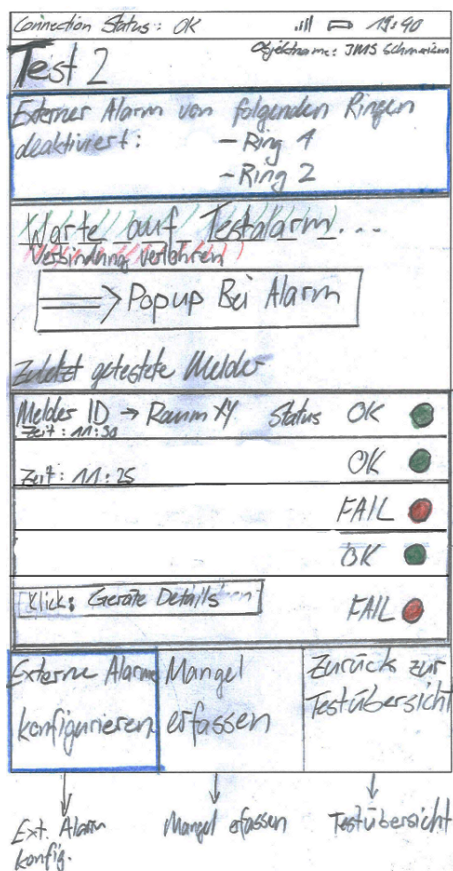 Connection Status: OK 19:40
Test 2 Objektname: JMS Schmerikon
Externer Alarm von folgenden Ringen
deaktiviert: - Ring 4
- Ring 2
Warte auf Testalarm...
Verbindung verloren
=> Popup Bei Alarm
Zuletzt getestete Melder
Melder ID → Raum XY Status OK
Zeit: 11:30
OK
Zeit: 11:25
FAIL
OK
Klick: Geräte Details
FAIL
Externe Alarme
konfigurieren
Mangel
erfassen
Zurück zur
Testübersicht
Ext. Alarm
konfig.
Mangel erfassen
Testübersicht